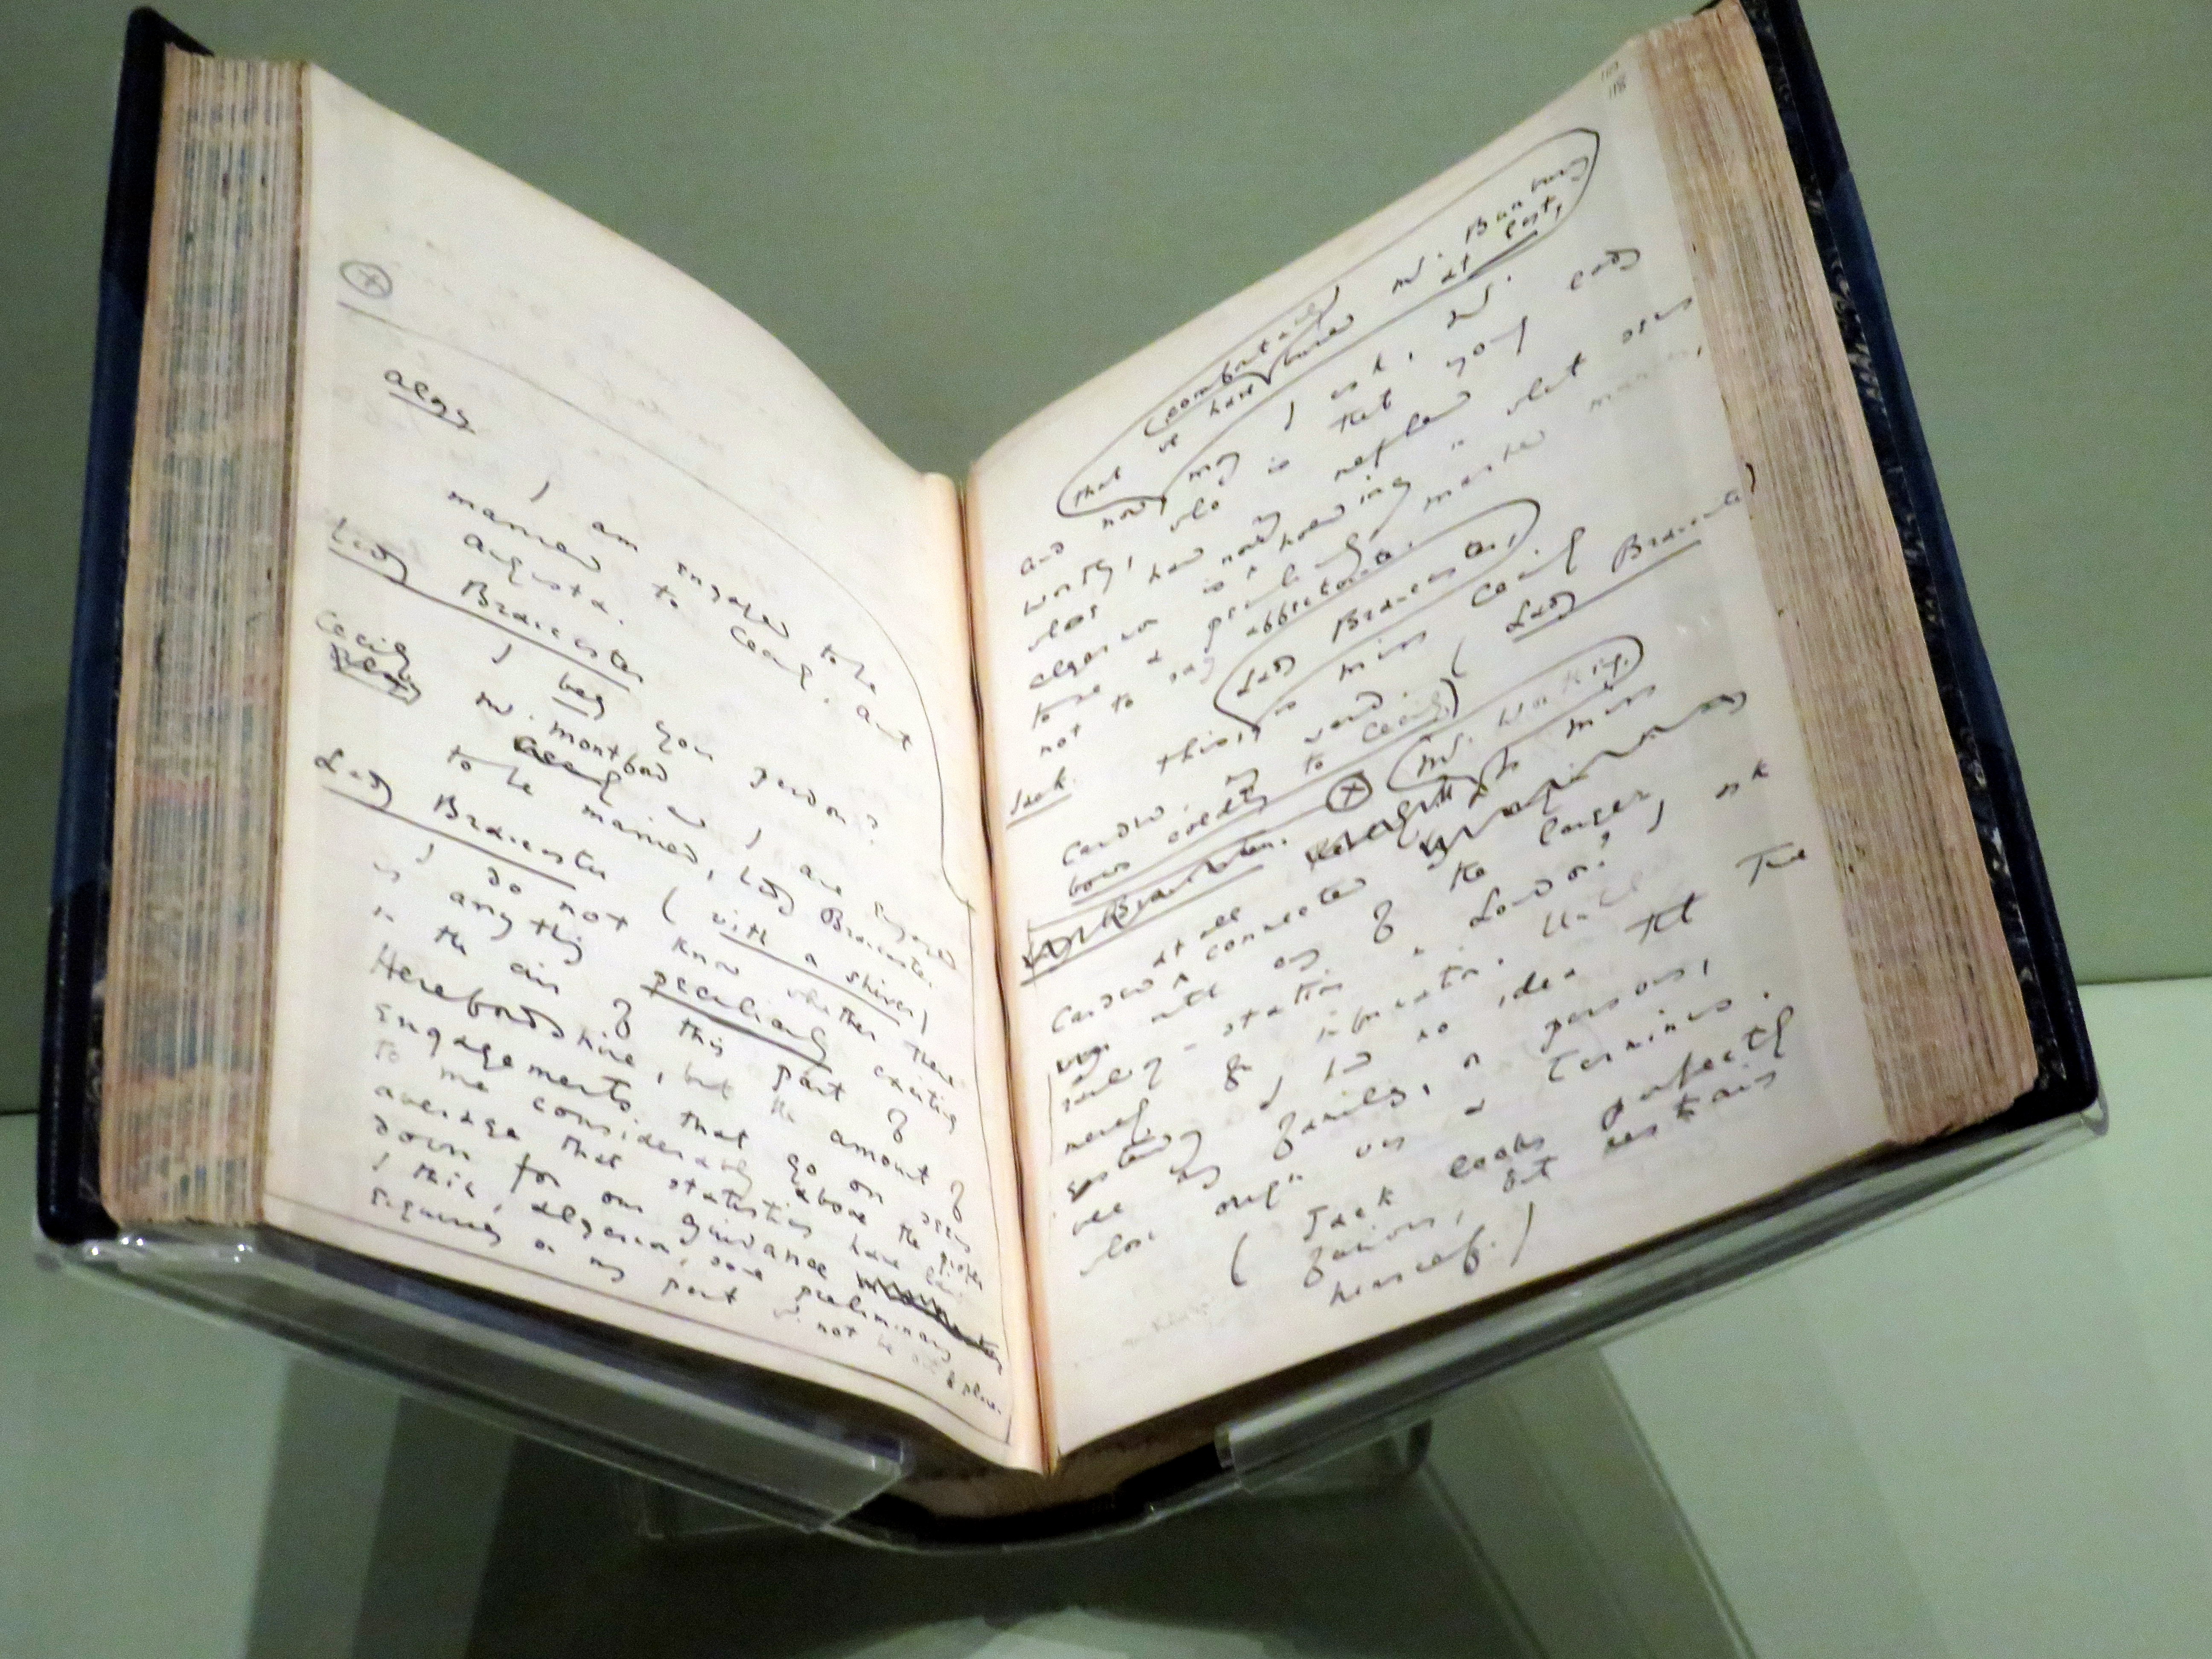 Algy
I am engaged to be
married to Cecily, Aunt
Augusta.
Lady Brancaster
I beg your pardon?
Cecily
Mr. Montford and I are engaged
to be married, Lady Brancaster.
Lady Brancaster (with a shiver)
I do not know whether there
is anything peculiarly exciting
in the air of this part of
Herefordshire, but the amount of
engagements that go on seems
to me considerably above the proper
average that statistics have laid
down for our guidance
I think, Algernon, some preliminary
enquiry on my part not be out of place.
that we have buried Mr. Bunbury
comfortably
at last,
and now may I ask, Mr.
who is that young lady
whose hand my nephew
Algernon is now holding in what seems
to me a peculiarly
not to say affectionate manner
Lady Brancaster,
Jack. This is Miss Cecily
Cardew. my ward. (Lady Brancaster
bows coldly to Cecily)
Mr. Worthing. Is Miss
Cardew at all connected
with any of the larger
railway-stations in London? I ask
merely for information. Until
yesterday I had no idea that The
were any families, or persons,
whose origin was a Terminus.
(Jack looks perfectly
furious, but restrains
himself.)